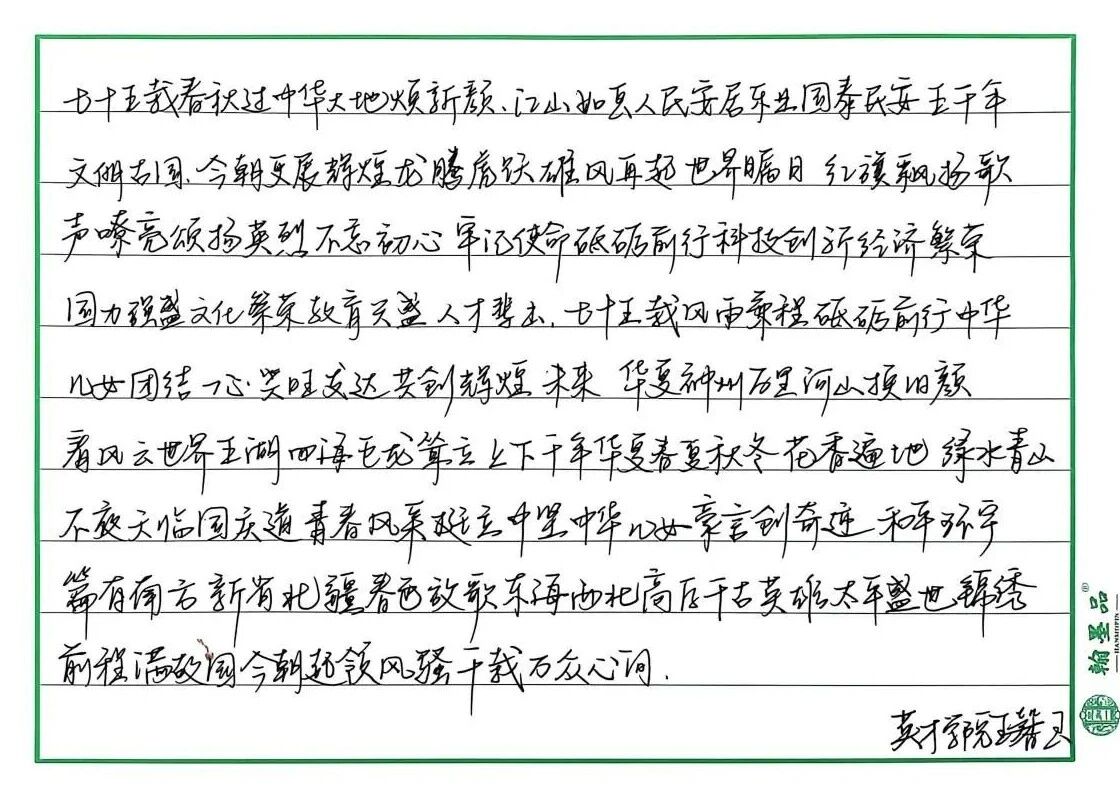 七十五载春秋过中华大地焕新颜.江山如画人民安居乐业国泰民安五千年
文明古国.今朝更展辉煌龙腾虎跃雄风再起世界瞩目 红旗飘扬歌
声嘹亮颂扬英烈不忘初心 牢记使命砥砺前行科技创新经济繁荣
国力强盛文化繁荣教育兴盛 人才辈出.七十五载风雨兼程砥砺前行中华
儿女团结一心兴旺发达共创辉煌未来 华夏神州万里河山换旧颜
看风云世界五湖四海巨龙耸立上下千年华夏春夏秋冬花香遍地 绿水青山
不夜天临国庆道青春风采挺立中坚中华儿女豪言创奇迹 和平环宇
篇有南方新省北疆春西放歌东海西北高原千古英雄太平盛世锦绣
前程满故国今朝起领风骚千载万众心间.
英才学院王馨
翰墨品®
HANMOPIN